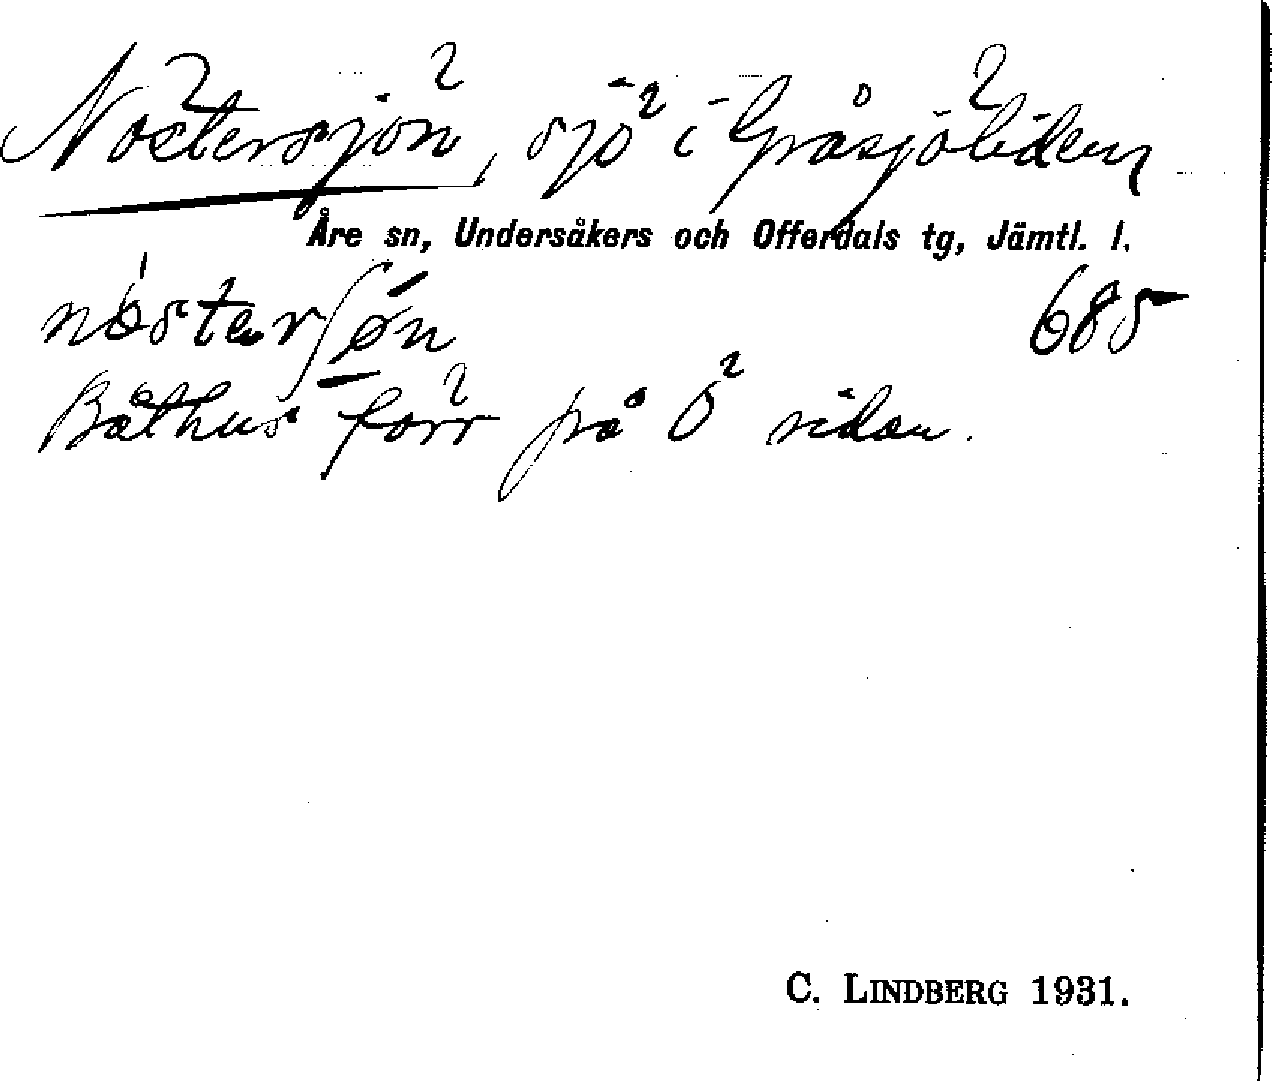 Nöstersjön, sjö i Gråsjöliden
Åre sn, Undersåkers och Offerdals tg, Jämtl. l.
nøsterʃøn 685
Båthus förr på Ö sidan.
C. LINDBERG 1931.